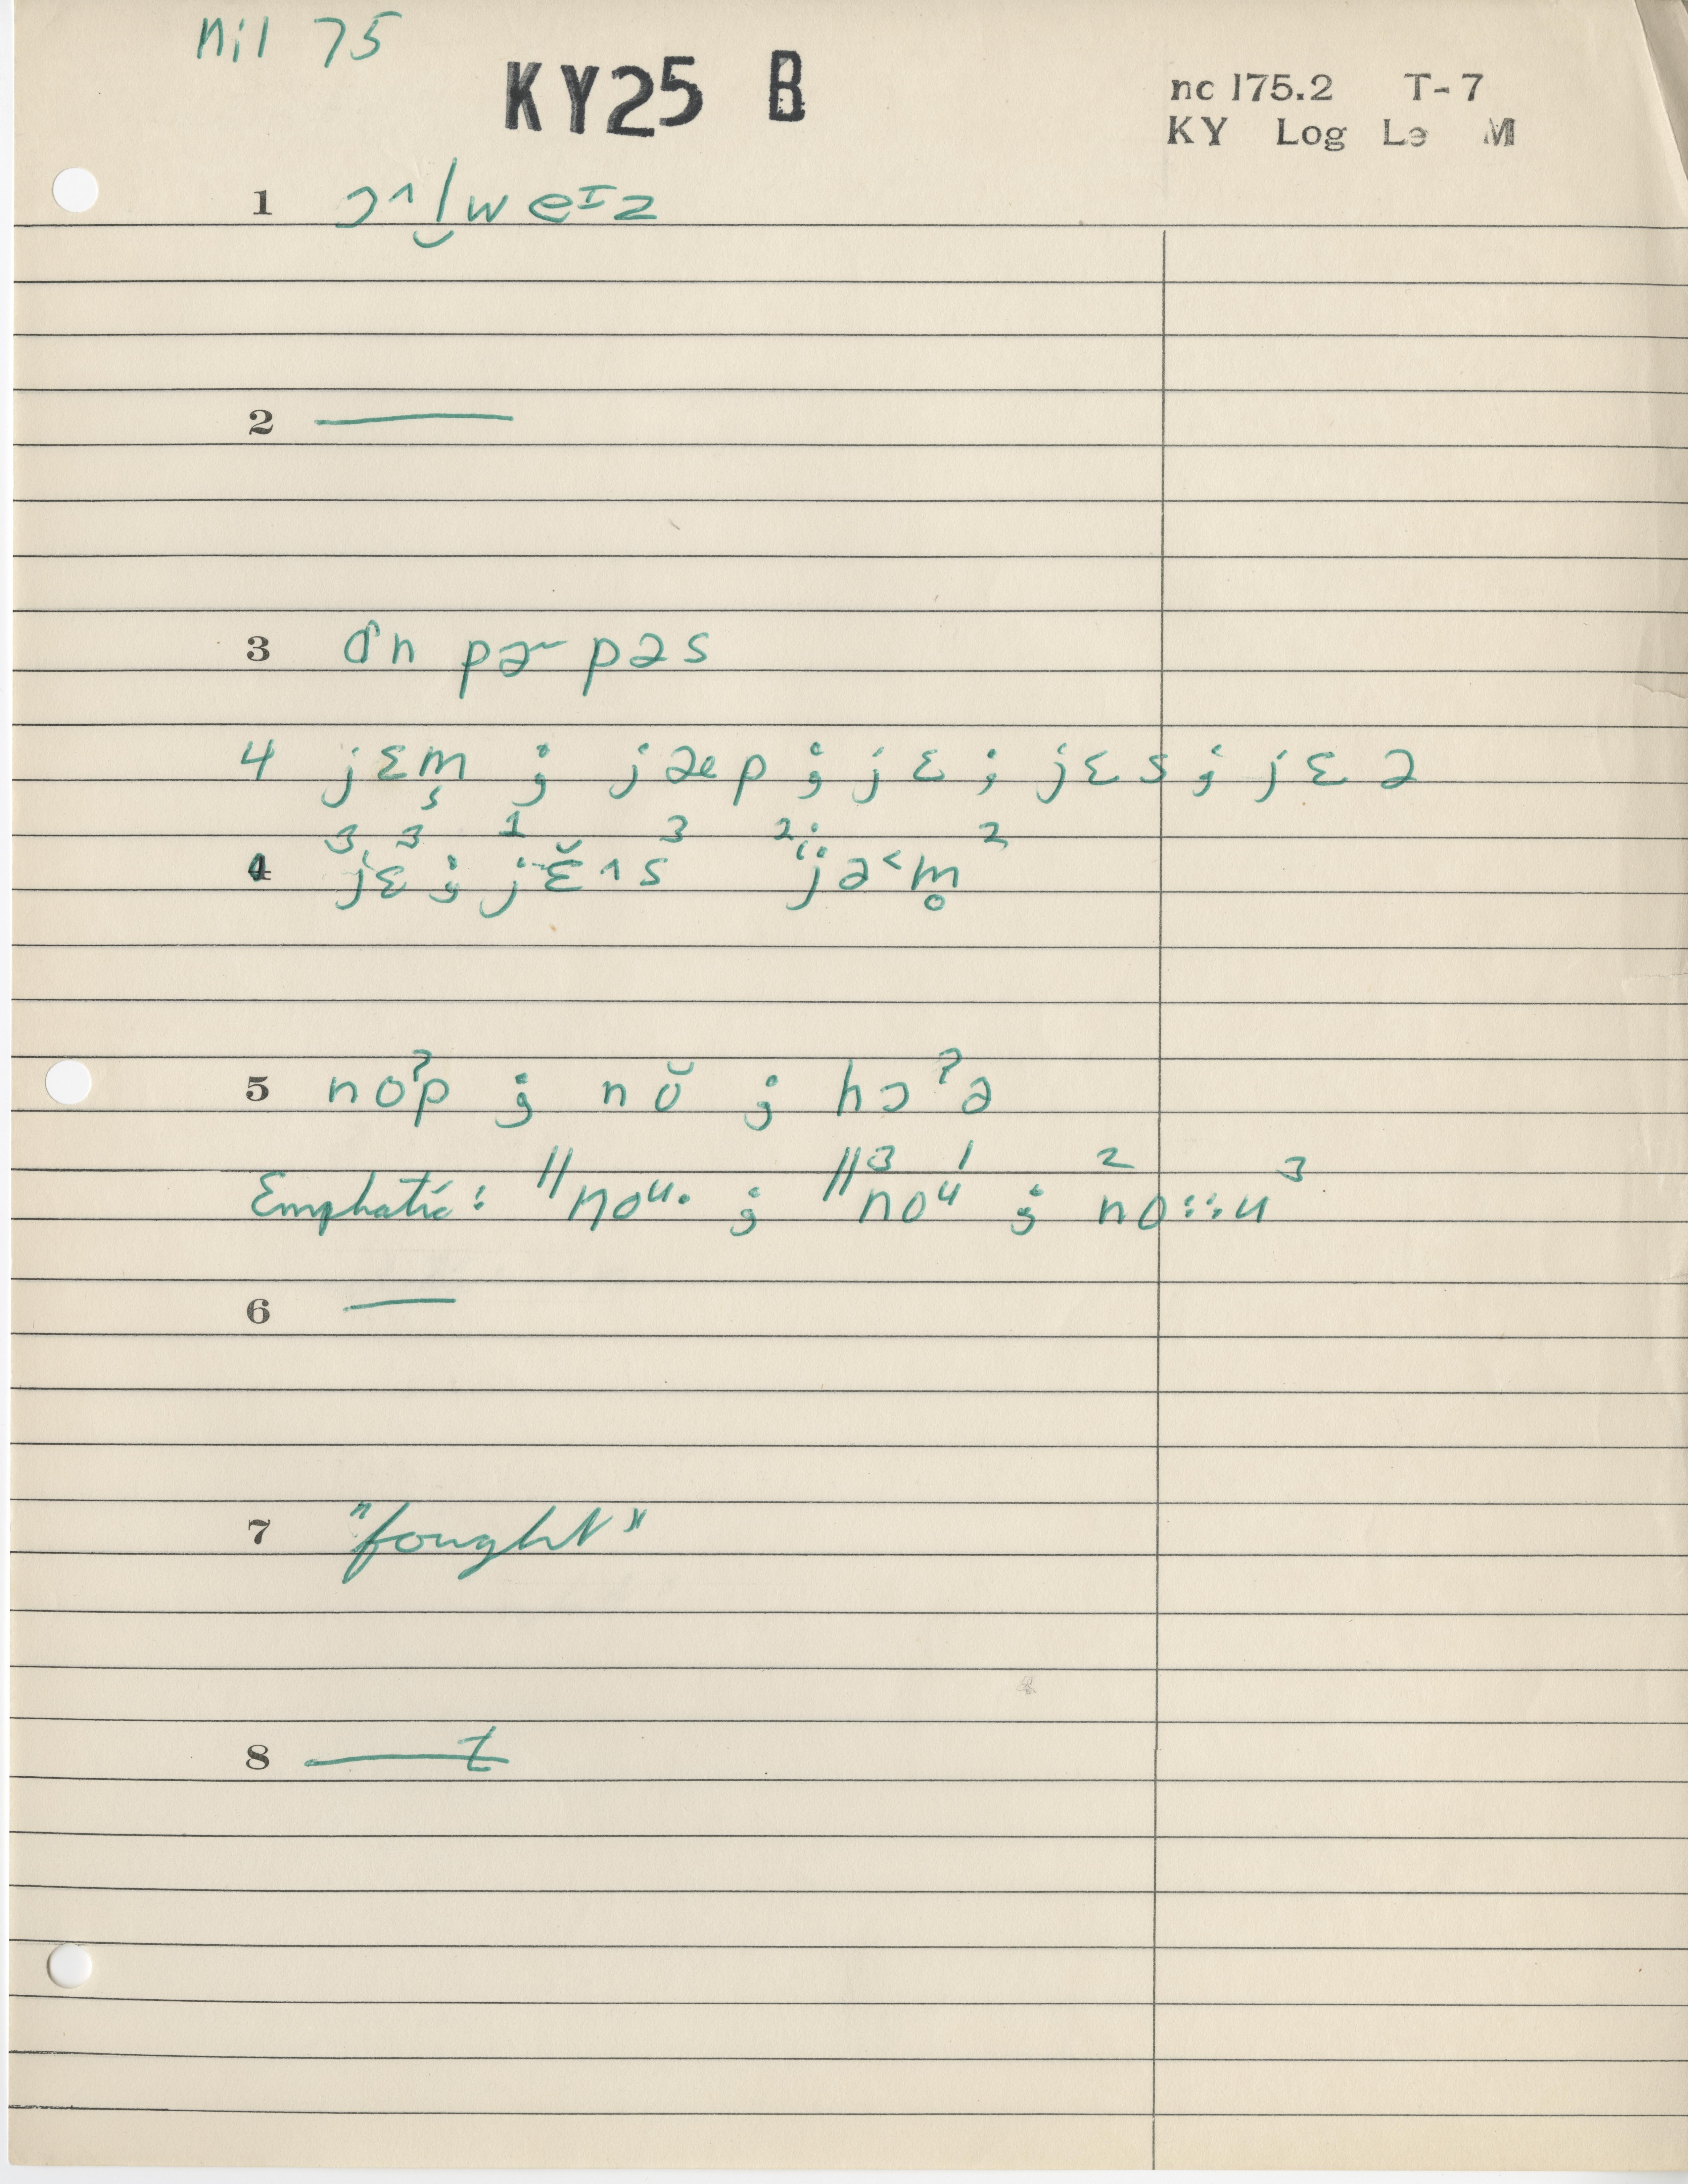 nil 75
KY25 B
nc 175.2 T-7
KY Log Le M
1 ɔ˄l̮weɪz
2 ——
3 ɑ˄n pɚpəs
4 jɛm̬ ; jæp ; jɛ ; jɛs ; jɛə
4 ³jɛ³ ; ¹jɛ̆˄s³ ²jə˂m̥²
5 noʔp ; nŏ ; hɔʔə
Emphatic: ‖noᵘ· ; ‖³noᵘ¹ ; ²no::u³
6 —
7 "fought"
8 ——t